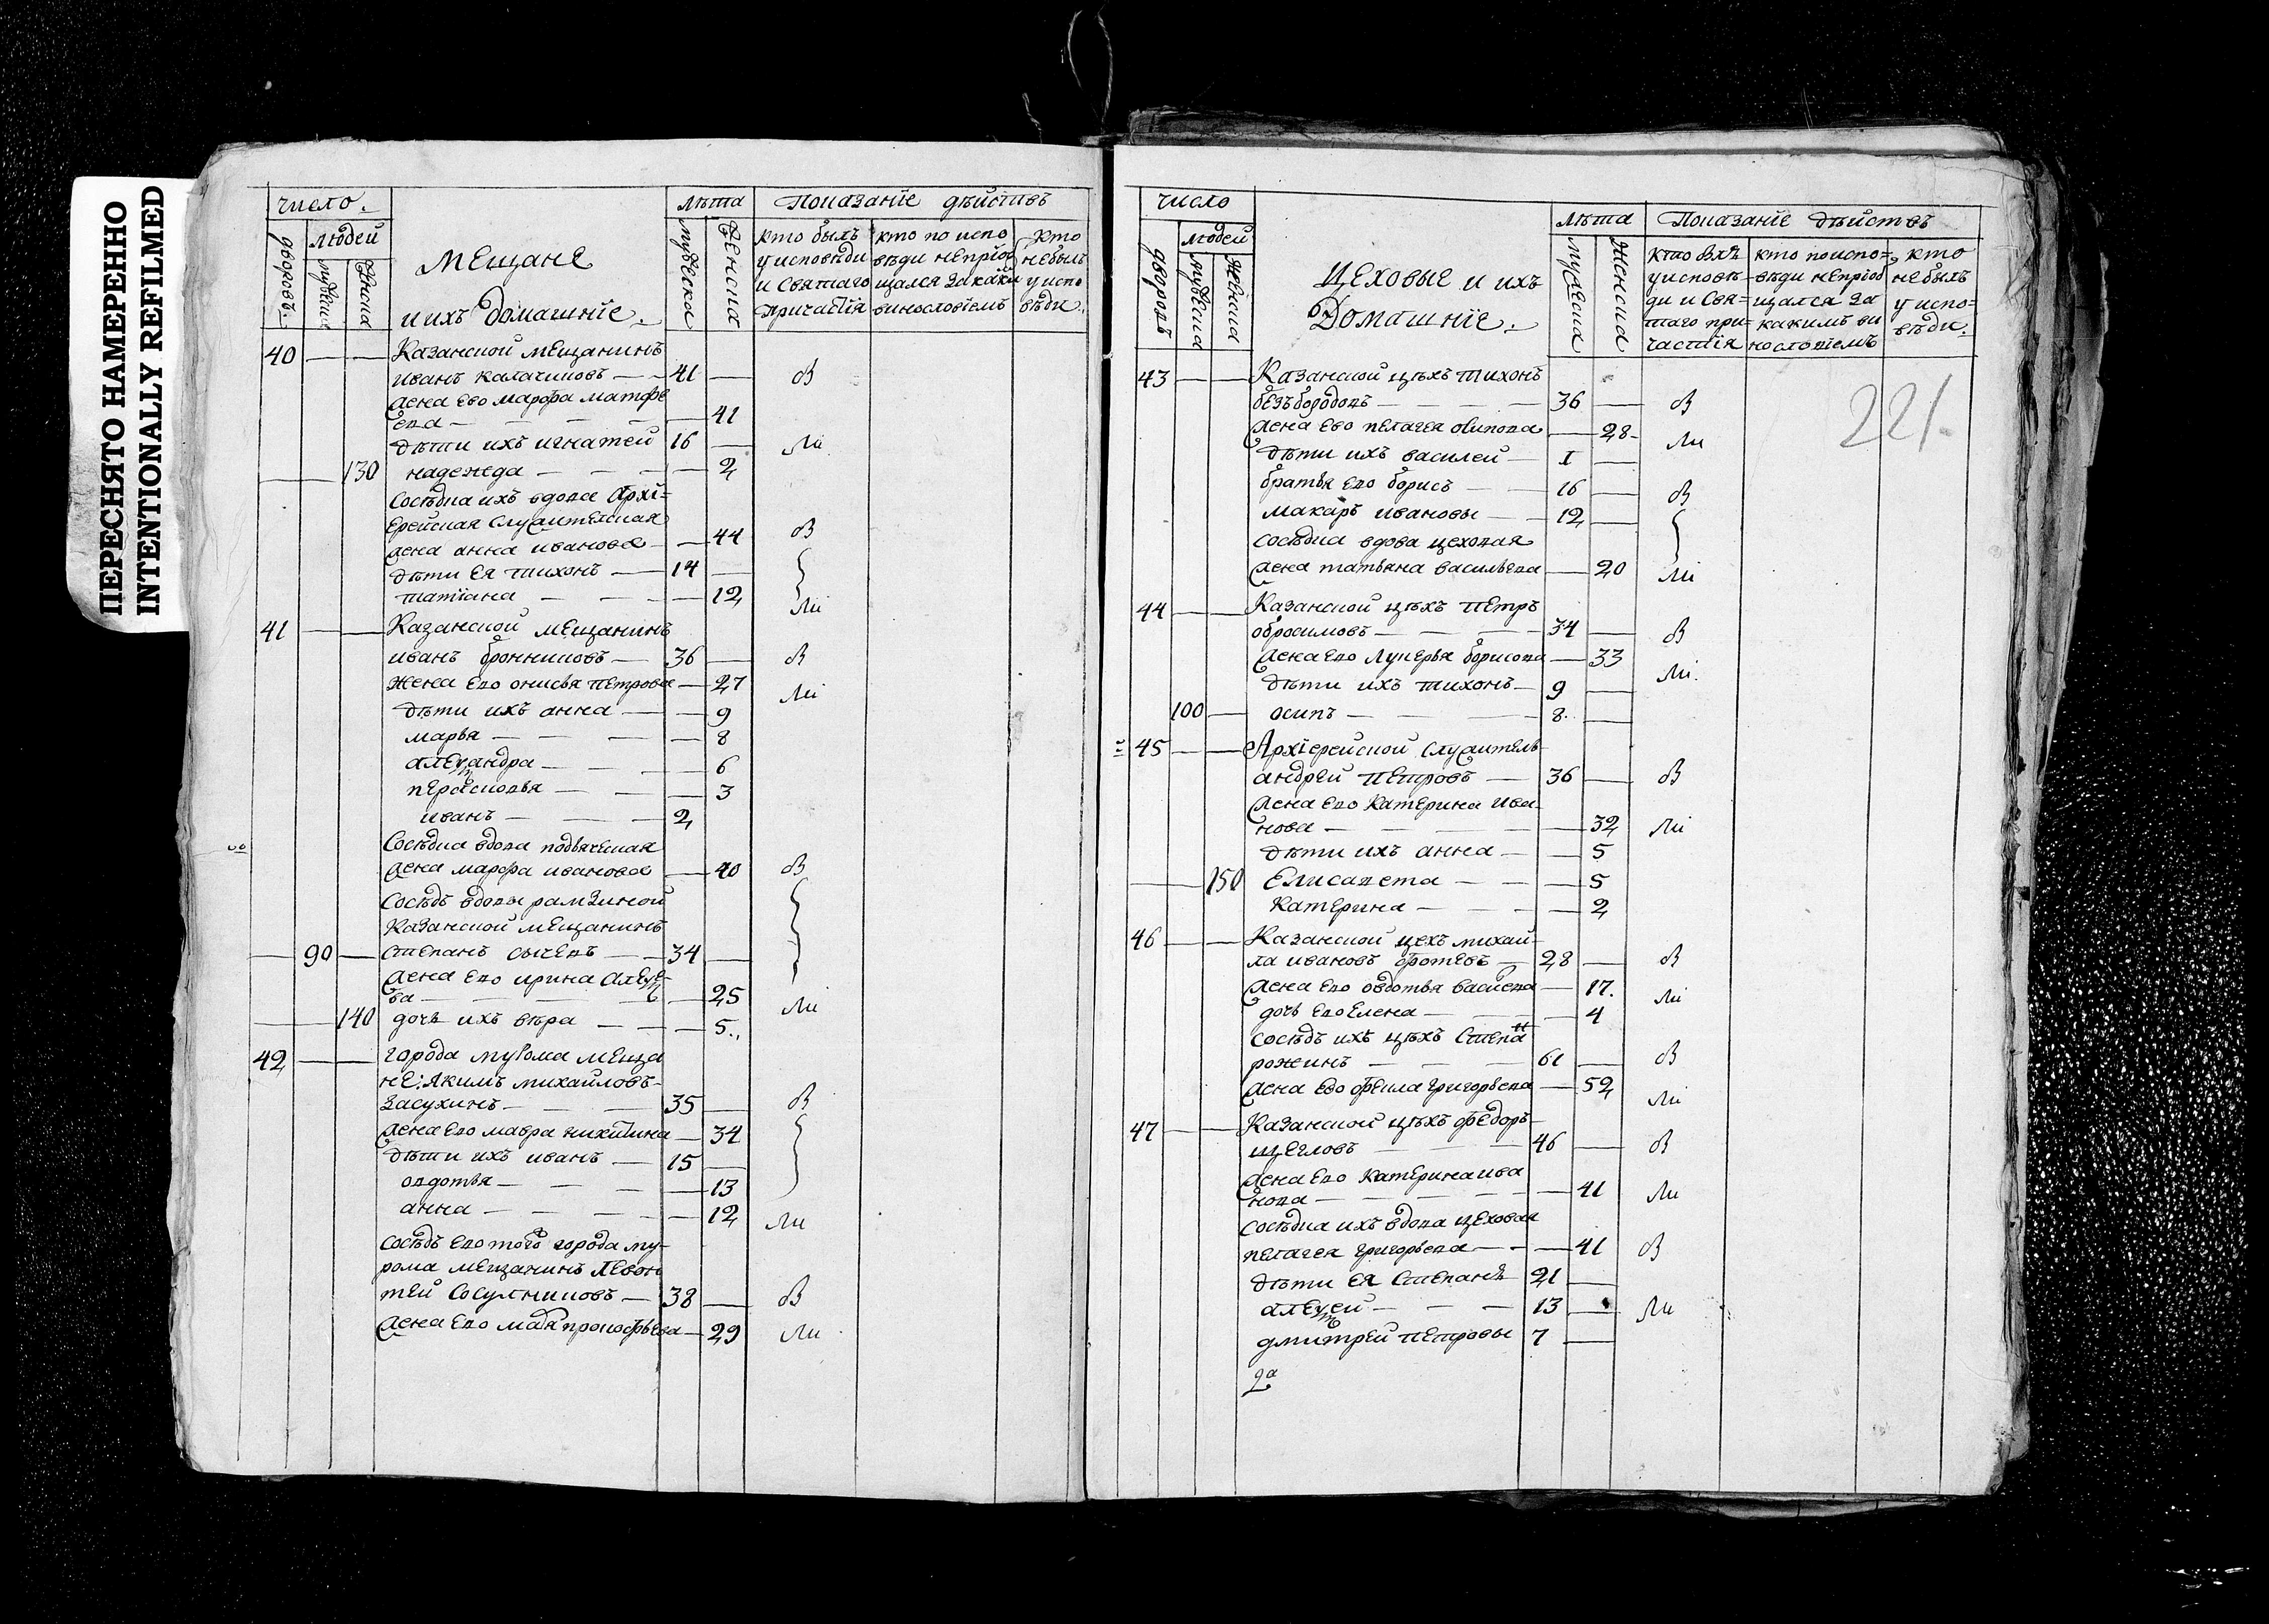 ПЕРЕСНЯТО НАМЕРЕННО
INTENTIONALLY REFILMED
число.
дворовъ.
людей
мужеска
женска
мещане
и ихъ домашнїе.
лѣта
мужеска
женска
Показанїе дѣйствъ
кто былъ
у исповѣди
и святаго
причастїя
кто по испо
вѣди не прїоб
щался за каки
винословїемъ
кто
не былъ
у испо
вѣди.
40 Казанской мещанинъ
иванъ калачиковъ 41 В
жена ево марфа матфе
ева 41
дѣти ихъ игнатей 16 Ли
130 надежда 2
сосѣдка ихъ вдова Архї=
ерейская служительская
жена анна иванова 44 В
дѣти ея тихонъ 14
татїана 12 Ли
41 Казанской мещанинъ
иванъ бронниковъ 36 В
жена ево онисья петрова 27 Ли
дѣти ихъ анна 9
марья 8
александра 6
перасковья 3
иванъ 2
Сосѣдка вдова подьяческая
жена марфа иванова 40 В
Сосѣдъ вдовы рамзиной
Казанской мещанинъ
90 степанъ сычевъ 34
жена ево ирина Алексе
ва 25 Ли
140 дочь ихъ вѣра 5.
42 города мурома меща
не: Якимъ михайловъ
Засухинъ 35 В
жена ево мавра никитина 34
дѣти ихъ иванъ 15
овдотья 13
анна 12 Ли
сосѣдъ ево того города му-
рома мещанинъ левон
тей Сосулниковъ 38 В
жена ево прокофьева 29 Ли
число
дворовъ
людей
мужеска
женска
Цеховые и ихъ
Домашнїе.
лѣта
мужеска
женска
Показанїе дѣйствъ
кто былъ
у исповѣ-
ди и свя=
таго при-
частїя
кто по испо=
вѣди не прїоб
щался за
какимъ ви
нословїемъ
кто
не былъ
у испо=
вѣди.
221.
43 Казанской цѣхъ тихонъ
безъбородовъ 36 В
жена ево пелагея осипова 28 Ли
дѣти ихъ василей 1
братья ево борисъ 16 В
макаръ ивановы 12
сосѣдка вдова цеховая
жена татьяна васильева 20 Ли
44 Казанской цѣхъ петръ
обросимовъ 34 В
жена ево лукерья борисова 33 Ли.
дѣти ихъ тихонъ 9
100 осипъ 8
45 Архїерейской служитель
андрей петровъ 36 В
жена ево катерина ива
нова 32 Ли
дѣти ихъ анна 5
150 Елисавета 5
катерина 2
46 Казанской цехъ михай-
ла ивановъ 28 В
жена ево овдотья васильева 17. Ли
дочь ево Елена 4
сосѣдъ ихъ цѣхъ Степан
рожинъ 61 В
жена ево фекла григорьева 52 Ли
47 Казанской цѣхъ федоръ
щегловъ 46 В
жена ево катерина ива
нова 41 Ли
сосѣдка ихъ вдова цеховая
пелагея григорьева 41 В
дѣти ея Степанъ 21
алексей 13 Ли
дмитрей петровы 7